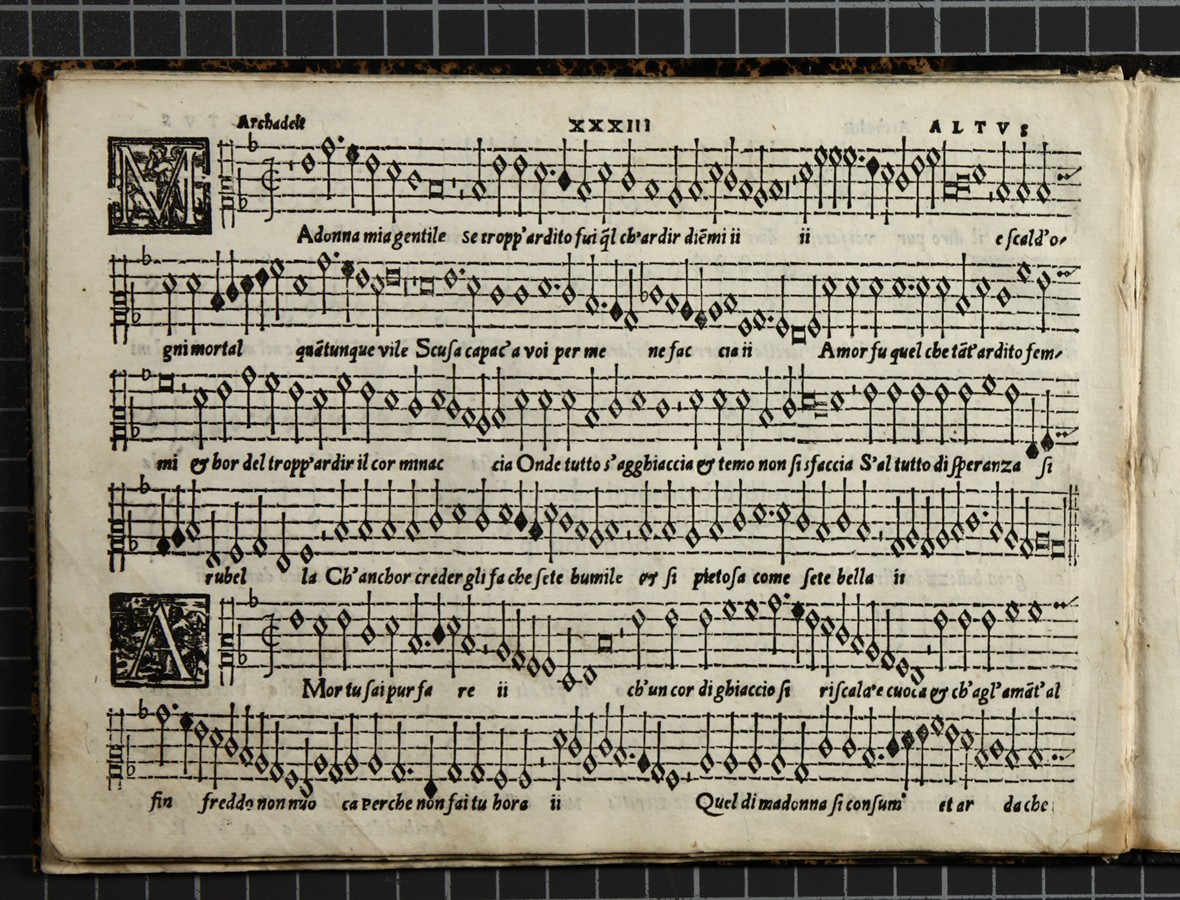 Archadelt XXXIII ALTVS
MAdonna mia gentile se tropp'ardito fui q̃l ch'ardir diẽmi ii ii e scald'o-
gni mortal quãtunque vile Scusa capac'a voi per me ne fac cia ii Amor fu quel che tãt'ardito fem-
mi & hor del tropp'ardir il cor minac cia Onde tutto s'agghiaccia & temo non si sfaccia S'al tutto di speranza si
rubel la Ch'anchor creder gli fa che sete humile & si pietosa come sete bella ii
AMor tu sai pur fa re ii ch'un cor di ghiaccio si riscala'e cuoca & ch'agl'amãt'al
fin freddo non nuo ca Perche non fai tu hora ii Quel di madonna si consum' et ar da che